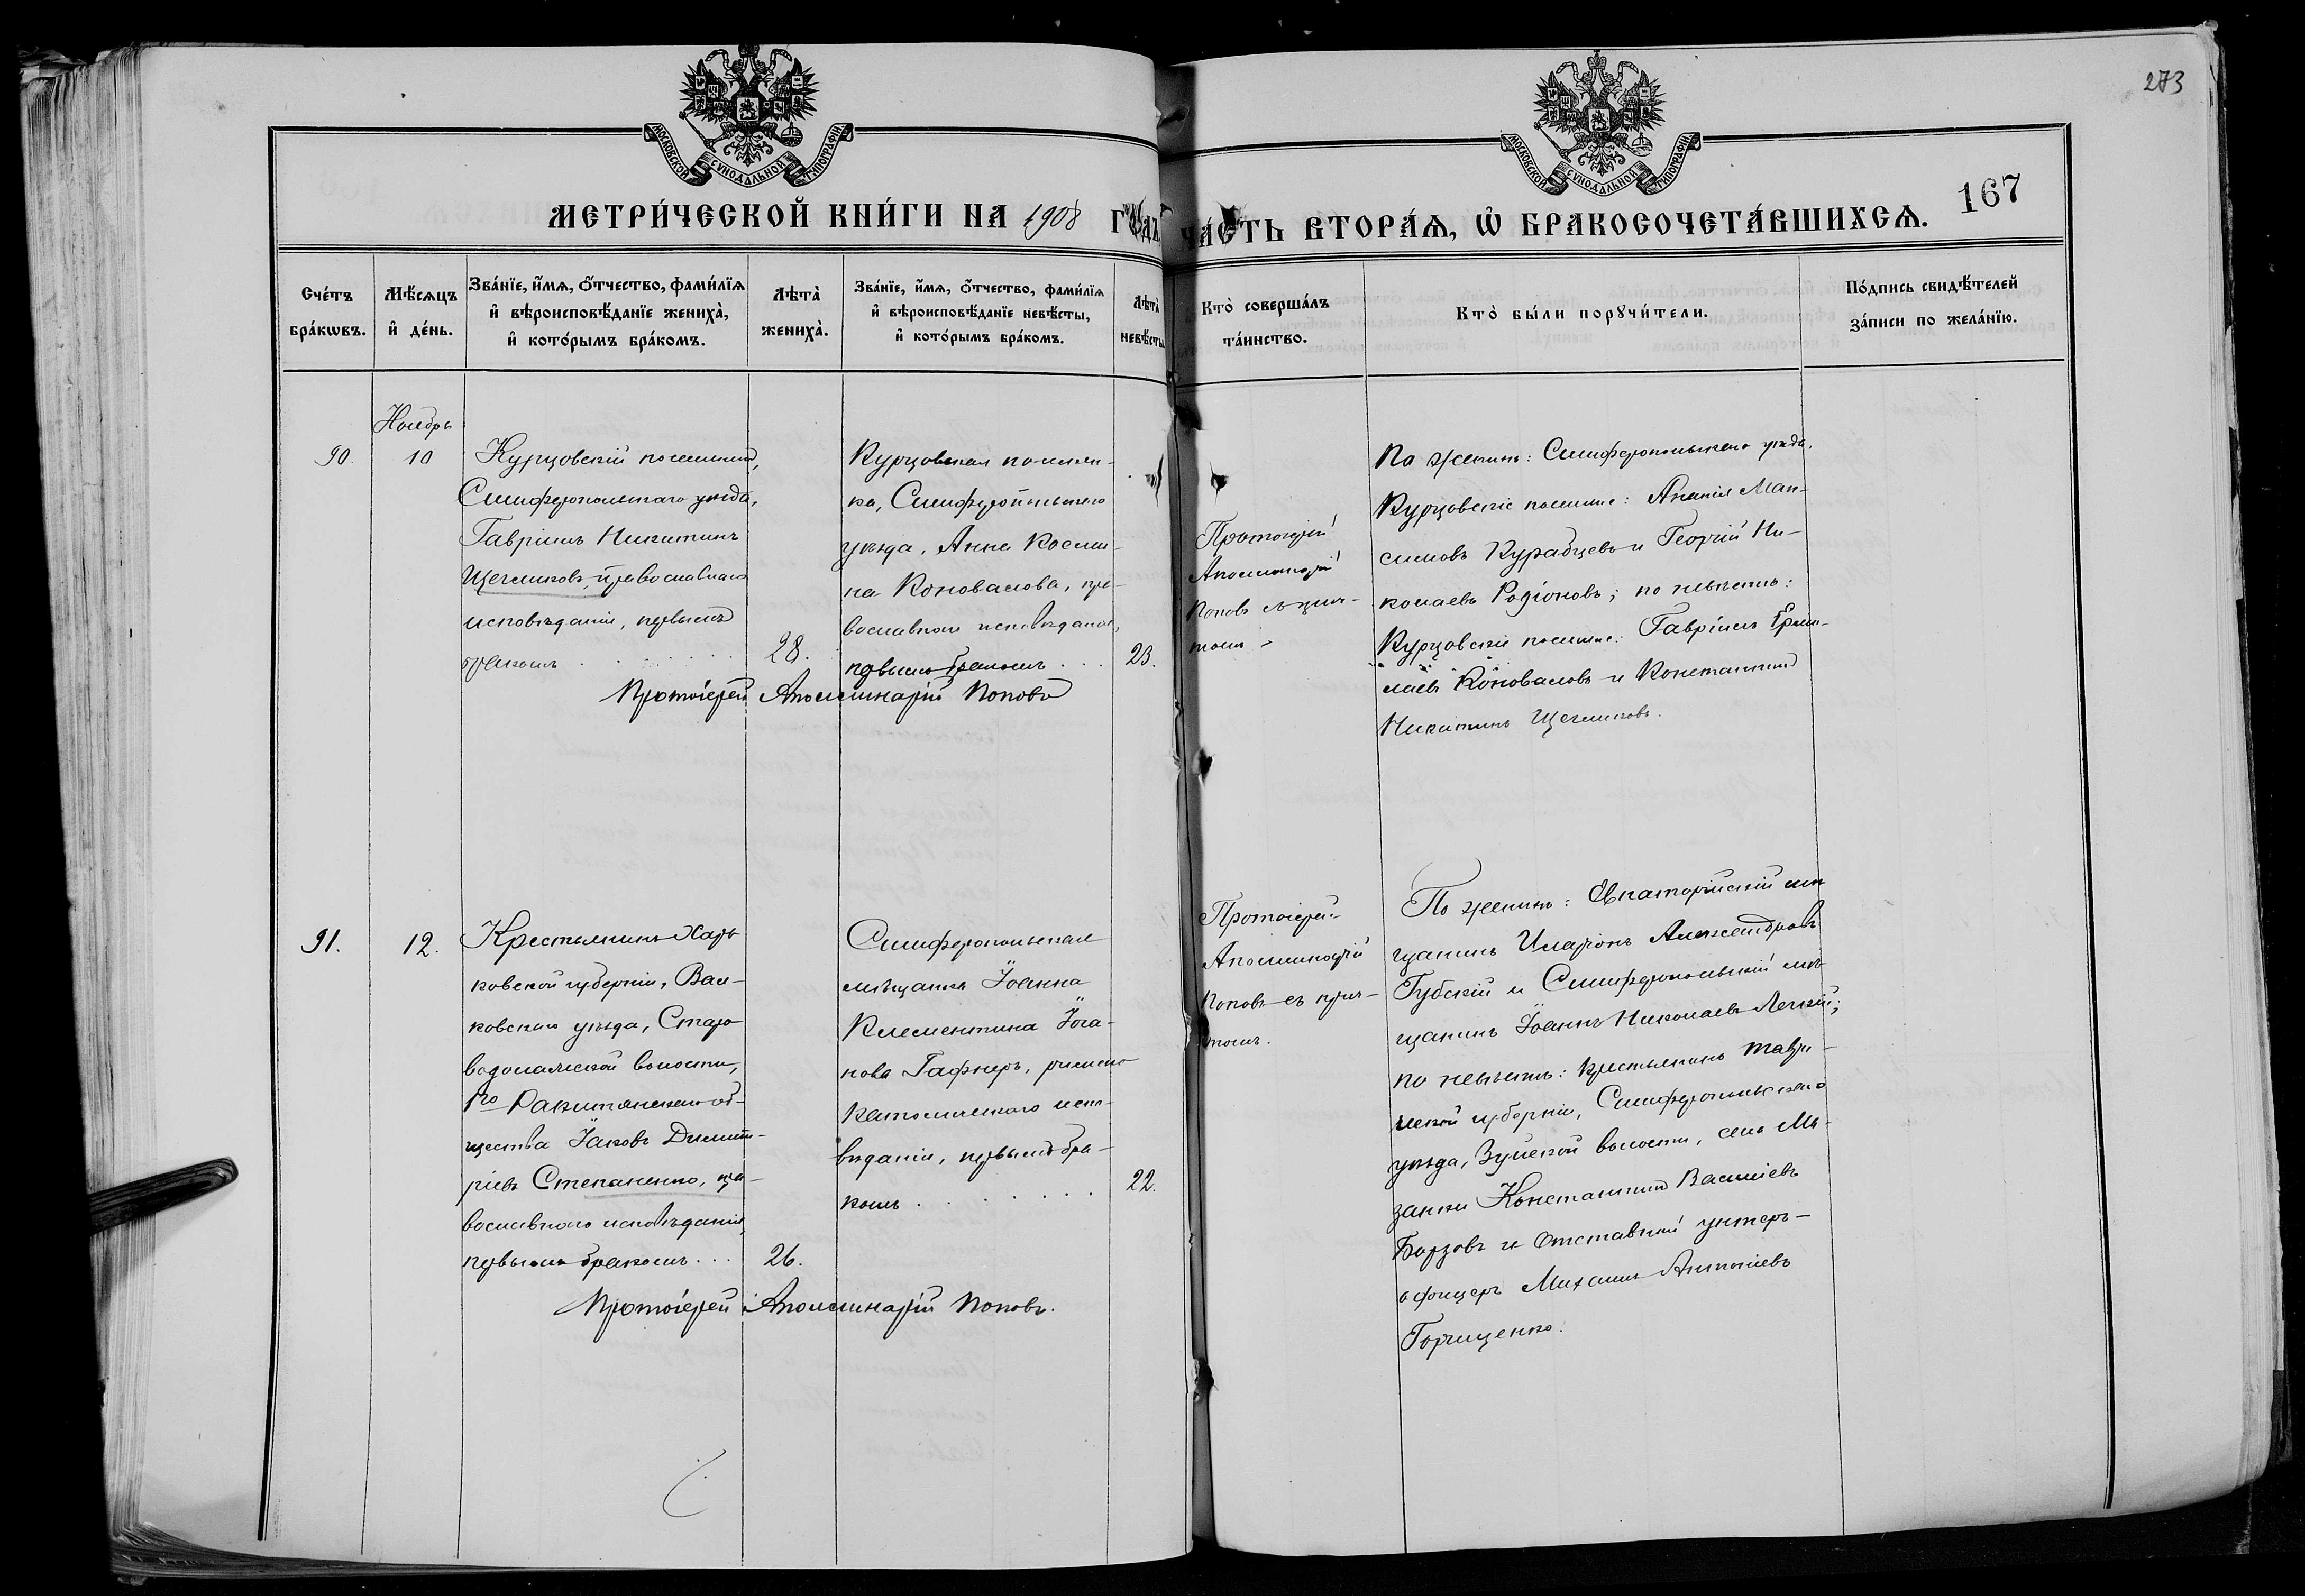 273
МОСКОВСКОЙ СѴНОДАЛЬНОЙ ТИПОГРАФІИ
МОСКОВСКОЙ СѴНОДАЛЬНОЙ ТИПОГРАФІИ
МЕТРИ́ЧЕСКОЙ КНИ́ГИ НА 1908 ГОДЪ
ЧА́СТЬ ВТОРА́Ѧ, Ѡ҆ БРАКОСОЧЕТА́ВШИХСѦ.
167
Сче́тъ бра́кѡвъ.
Мѣ́сѧцъ и҆ де́нь.
Зва́нїе, и҆́мѧ, ѻ҆́тчество, фами́лїѧ
и҆ вѣроисповѣ́данїе жениха̀,
и҆ кото́рымъ бра́комъ.
Лѣта̀ жениха̀.
Зва́нїе, и҆́мѧ, ѻ҆́тчество, фами́лїѧ
и҆ вѣроисповѣ́данїе невѣ́сты,
и҆ кото́рымъ бра́комъ.
Лѣта̀ невѣ́сты
Кто̀ соверша́лъ та́инство.
Кто̀ бы́ли порꙋчи́тели.
По́дпись свидѣ́телей за́писи по жела́нїю.
Ноябрь
90.
10
Курцовскій поселянинъ,
Симферопольскаго уѣзда,
Гавріилъ Никитинъ
Щегликовъ, православнаго
исповѣданія, первымъ
бракомъ
28.
Курцовская поселян-
ка, Симферопольскаго
уѣзда, Анна Косми-
на Коновалова, пра-
вославнаго исповѣданія,
первымъ бракомъ
23.
Протоіерей Аполлинарій Поповъ
Протоіерей
Аполлинарій
Поповъ съ прич-
томъ
По женихѣ: Симферопольскаго уѣзда,
Курцовскіе поселяне: Ананія Мак-
симовъ Курабцевъ и Георгій Ни-
колаевъ Родіоновъ; по невѣстѣ:
Курцовскіе поселяне: Гавріилъ
Коноваловъ и Константинъ
Никитинъ Щегликовъ.
91.
12.
Крестьянинъ Харь
ковской губерніи, Вал-
ковскаго уѣзда, Старо
водолажской волости,
1го Ракитянскаго об-
щества Іаковъ Димит-
ріевъ Степаненко, пра-
вославнаго исповѣданія,
первымъ бракомъ
26.
Симферопольская
мѣщанка Іоанна
Клементина Іога-
нова Гафнеръ, римско
католическаго испо-
вѣданія, первымъ бра-
комъ
22.
Протоіерей Аполлинарій Поповъ.
Протоіерей
Аполлинарій
Поповъ съ прич-
томъ.
По женихѣ: Евпаторійскій мѣ
щанинъ Иларіонъ Александровъ
Губскій и Симферопольскій мѣ
щанинъ Іоаннъ Николаевъ Легкій;
по невѣстѣ: крестьянинъ Таври-
ческой губерніи, Симферопольскаго
уѣзда, Зуйской волости, села Ма-
занки Константинъ Василіевъ
Борзовъ и отставной унтеръ-
офицеръ Михаилъ Антоніевъ
Горчищенко.